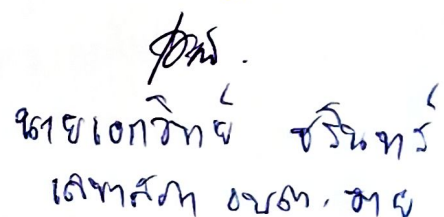 นายเอกวิทย์ ชรินทร์
เลขาสภา อบต. วาย